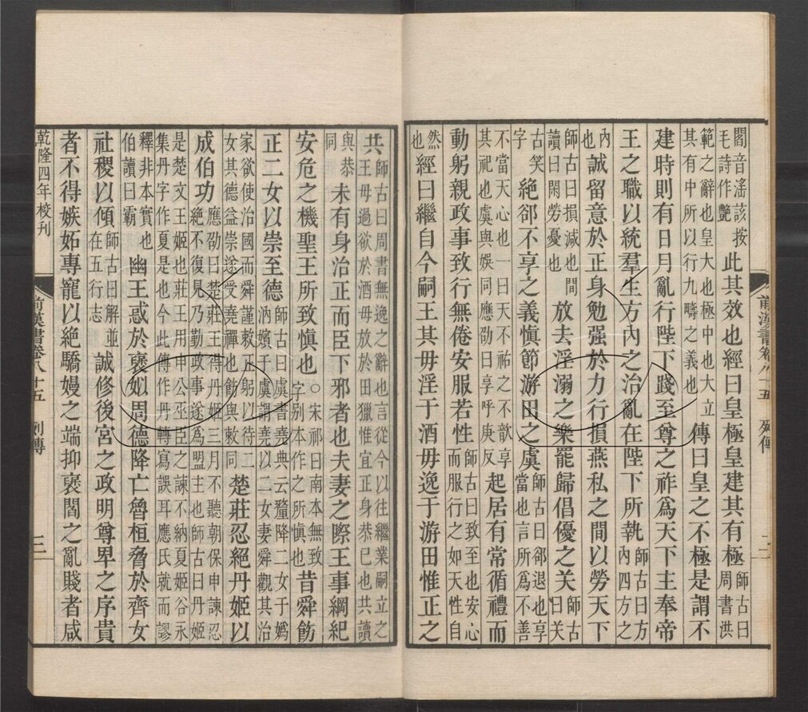 閻音滛該按
毛詩作艷
此其效也經曰皇極皇建其有極
師古曰
周書洪
範之辭也皇大也極中也大立
其有中所以行九疇之義也
傳曰皇之不極是謂不
建時則有日月亂行陛下踐至尊之祚爲天下主奉帝
王之職以統羣生方內之治亂在陛下所執
師古曰方
內四方之
內
也
誠留意於正身勉强於力行損燕私之閒以勞天下
師古曰損減也閒
讀曰閑勞憂也
放去淫溺之樂罷歸倡優之关
師古
曰关
古笑
字
絶郤不享之義愼節游田之虞
師古曰郤退也享
當也言所爲不善
不當天心也一曰天不祐之不歆享
其祀也虞與娛同應劭曰享呼庚反
起居有常循禮而
動躬親政事致行無倦安服若性
師古曰致至也安心
而服行之如天性自
然
也
經曰繼自今嗣王其毋淫于酒毋逸于游田惟正之
前漢書卷八十五 列傳
二
共
師古曰周書無逸之辭也言從今以往繼業嗣立之
王毋過欲於酒毋放於田獵惟宜正身恭巳也共讀
與恭
同
未有身治正而臣下邪者也夫妻之際王事綱紀
安危之機聖王所致愼也
○宋祁曰南本無致
字别本作之所愼也
昔舜飭
正二女以崇至德
師古曰虞書堯典云釐降二女于嬀
汭嬪于虞謂堯以二女妻舜觀其治
家欲使治國而舜謹敕正躬以待二
女其德益崇遂受堯禪也飭與敕同
楚莊忍絶丹姬以
成伯功
應劭曰楚莊王得丹姬三月不聽朝保申諫忍
絶不復見乃勤政事遂爲盟主也師古曰丹姬
是楚文王姬也莊王用申公巫臣之諫不納夏姬谷永
集丹字作夏是也今此傳作丹轉寫誤耳應氏就而謬
釋非本實也
伯讀曰霸
幽王惑於襃姒周德降亡魯桓脅於齊女
社稷以傾
師古曰解並
在五行志
誠修後宮之政明尊卑之序貴
者不得嫉妬專寵以絶驕嫚之端抑襃閻之亂賤者咸
乾隆四年校刊
前漢書卷八十五 列傳
三